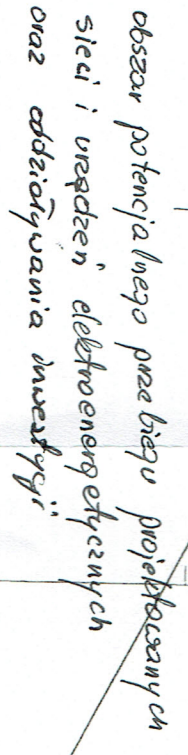 obszar potencjalnego przebiegu projektowanych
sieci i urządzeń elektroenergetycznych
oraz oddziaływania inwestycji